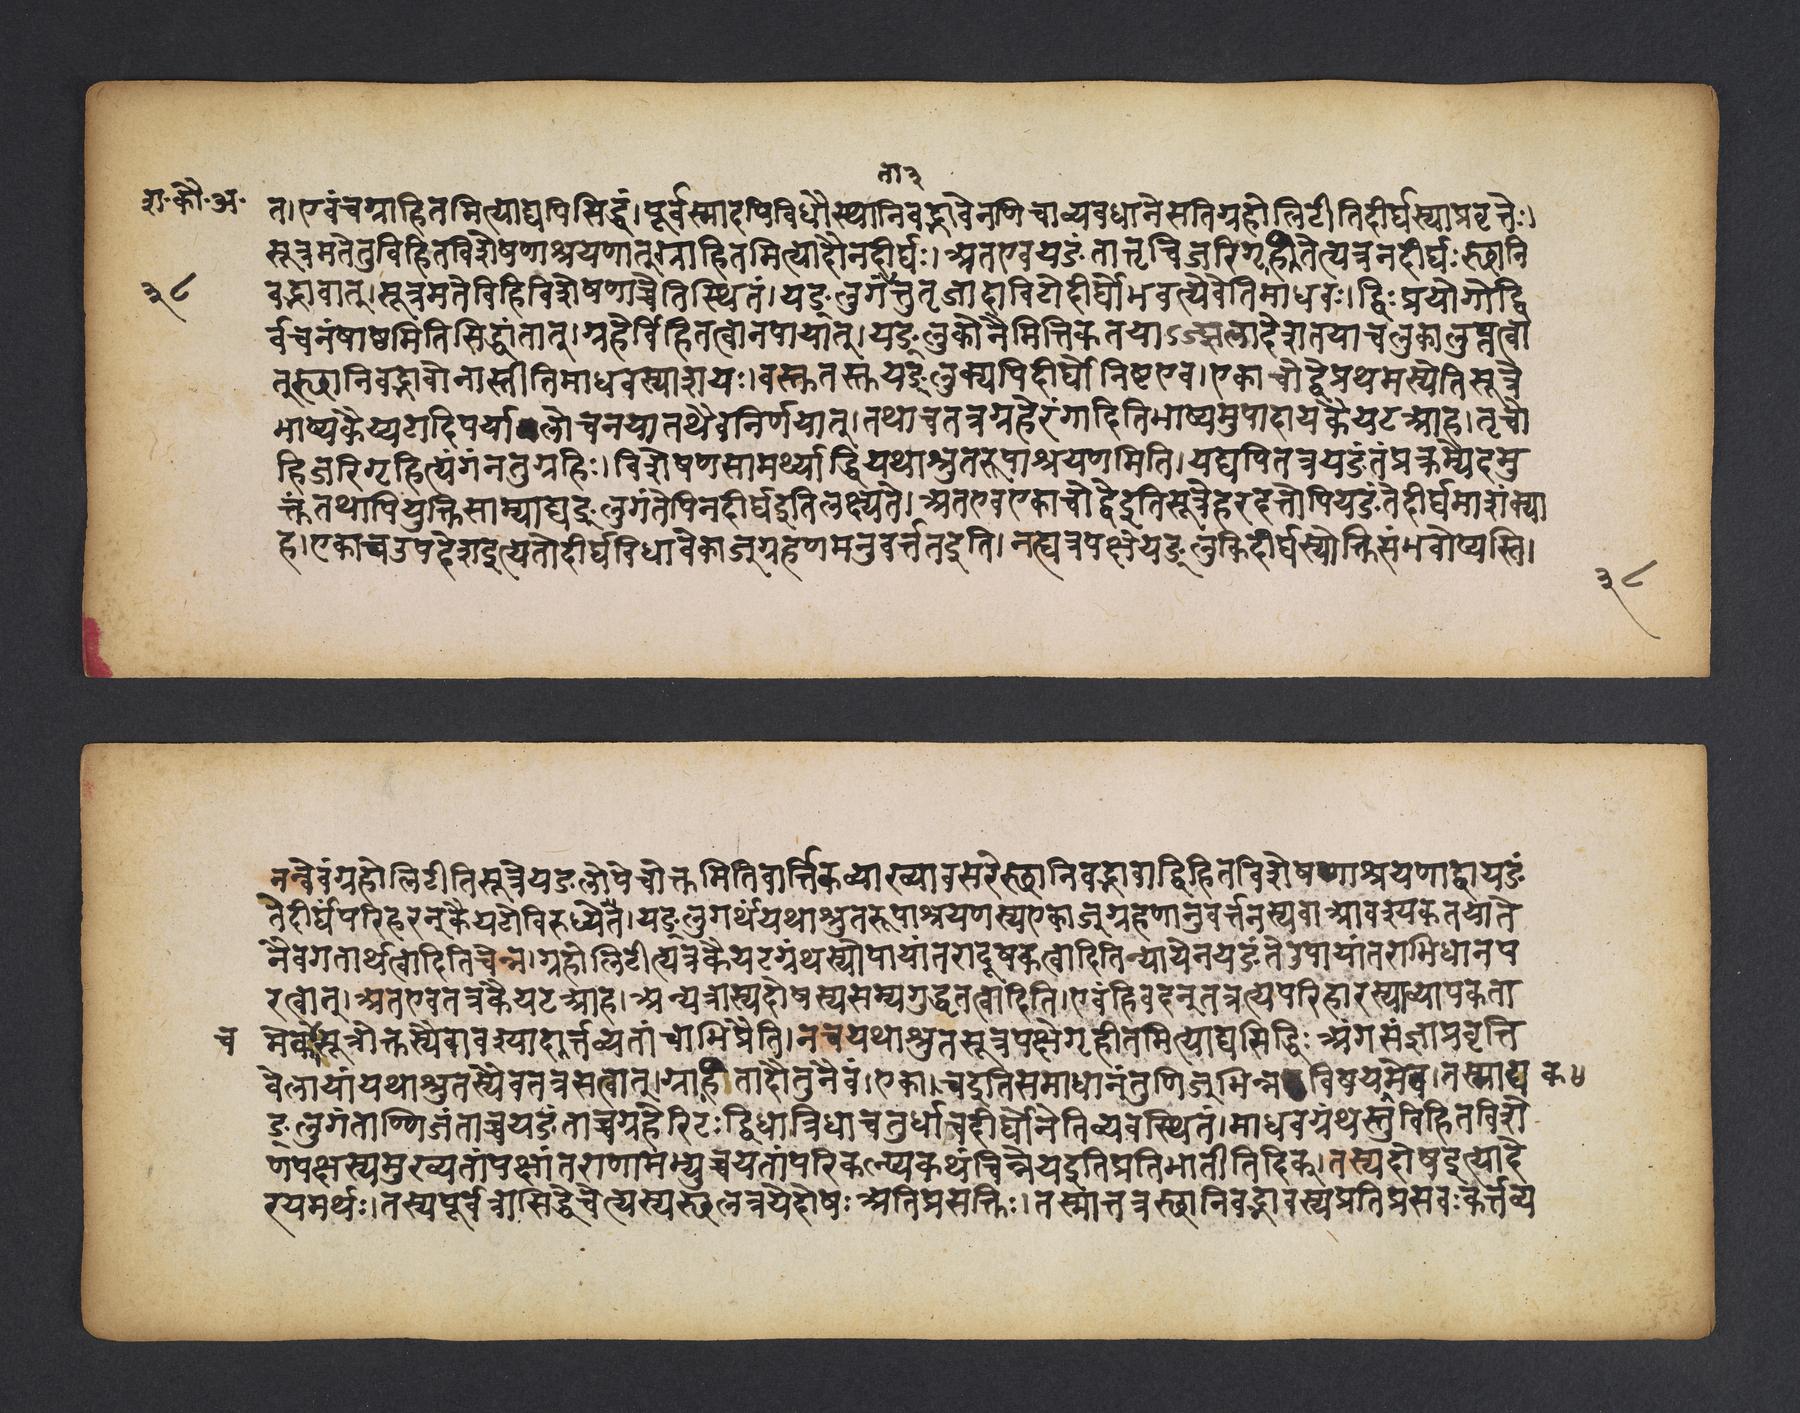 ता३
श.कौ.अ.
त।एवंचग्राहितमित्याद्यपिसिद्धं।पूर्वस्मादपिविधौस्थानिवद्भावेनणिचाव्यवधानेसतिग्रहोलिटीतिदीर्घस्याप्रवृत्तेः।
सूत्रमतेतुविहितविशेषणाश्रयणात्तुग्राहितमित्यादौनदीर्घः।अतएवयङंतात्तृचिजरिगृहीतेत्यत्रनदीर्घःस्थानि
३८
वद्भावात्।सूत्रमतेविहिविशेषणाच्चेतिस्थितं।यङ्लुगंतात्तुतृजादाविटोदीर्घोभवत्येवेतिमाधवः।द्विःप्रयोगोद्वि
र्वचनंषाष्ठमितिसिद्धांतात्।ग्रहेर्विहितत्वानपायात्।यङ्लुकोनैमित्तिकतयाऽज्झलादेशतयाचलुकालुप्तत्वा
त्तुस्थानिवद्भावोनास्तीतिमाधवस्याशयः।वस्तुतस्तुयङ्लुक्यपिदीर्घोनिष्टएव।एकाचोद्वेप्रथमस्येतिसूत्रे
भाष्यकैय्यटादिपर्यालोचनयातथैवनिर्णयात्।तथाचतत्रग्रहेरंगादितिभाष्यमुपादायकैयटआह।तृचो
हिजरिगृहित्यंगंनतुग्रहिः।विशेषणसामर्थ्याद्धियथाश्रुतरूपाश्रयणमिति।यद्यपितत्रयङंतंप्रक्रम्येदमु
क्तंतथापियुक्तिसाम्याद्यङ्लुगंतेपिनदीर्घइतिलक्ष्यते।अतएवएकाचोद्वेइतिसूत्रेहरदत्तोपियङंतेदीर्घमाशंक्या
ह।एकाचउपदेशइत्यतोदीर्घविधावेकाज्ग्रहणमनुवर्त्ततइति।नह्यत्रपक्षेयङ्लुकिदीर्घस्योक्तिसंभवोप्यस्ति।
३८
नन्वेवंग्रहोलिटीतिसूत्रेयङलोपेचोक्तमितिवार्त्तिकव्याख्यावसरेस्थानिवद्भावाद्विहितविशेषणाश्रयणाद्वायङं
तेदीर्घंपरिहरन्कैयटोविरुध्येत।यङ्लुगर्थंयथाश्रुतरूपाश्रयणस्यएकाज्ग्रहणानुवर्त्तनस्यवाआवश्यकतयाते
नैवगतार्थत्वादितिचेन्न।ग्रहोलिटीत्यत्रकैयटग्रंथस्योपायांतरादूषकत्वादितिन्यायेनयङंतेउपायांतराभिधानप
रत्वात्।अतएवतत्रकैयटआह।अन्यत्रास्यदोषस्यसम्यगुद्धृतत्वादिति।एवंहिवदन्तत्रत्यपरिहारस्याव्यापकता
च
मेकसूत्रोक्तस्यैवावश्यादर्त्तव्यतांचाभिप्रैति।नचयथाश्रुतसूत्रपक्षेगृहीतमित्याद्यसिद्धिःअंगसंज्ञाप्रवृत्ति
वेलायांयथाश्रुतस्यैवतत्रसत्वात्।ग्राहितादौतुनैवं।एका।चइतिसमाधानंतुणिज्भिन्नविषयमेव।तस्माद्य क४
ङ्लुगंताण्णिजंताच्चयङंताच्चग्रहेरिटःद्विधात्रिधाचतुर्धाचदीर्घोनेतिव्यवस्थितं।माधवग्रंथस्तुविहितविशे
णपक्षस्यमुख्यतांपक्षांतराणामभ्युच्चयतांपरिकल्प्यकथंचिन्नेयइतिप्रतिभातीतिदिक्।तस्यदोषइत्यादे
रयमर्थः।तस्यपूर्वत्रासिद्धेचेत्यस्यस्थलत्रयेदोषःअतिप्रसक्तिः।तस्मात्तत्रस्थानिवद्भावस्यप्रतिप्रसवःकर्त्तव्य